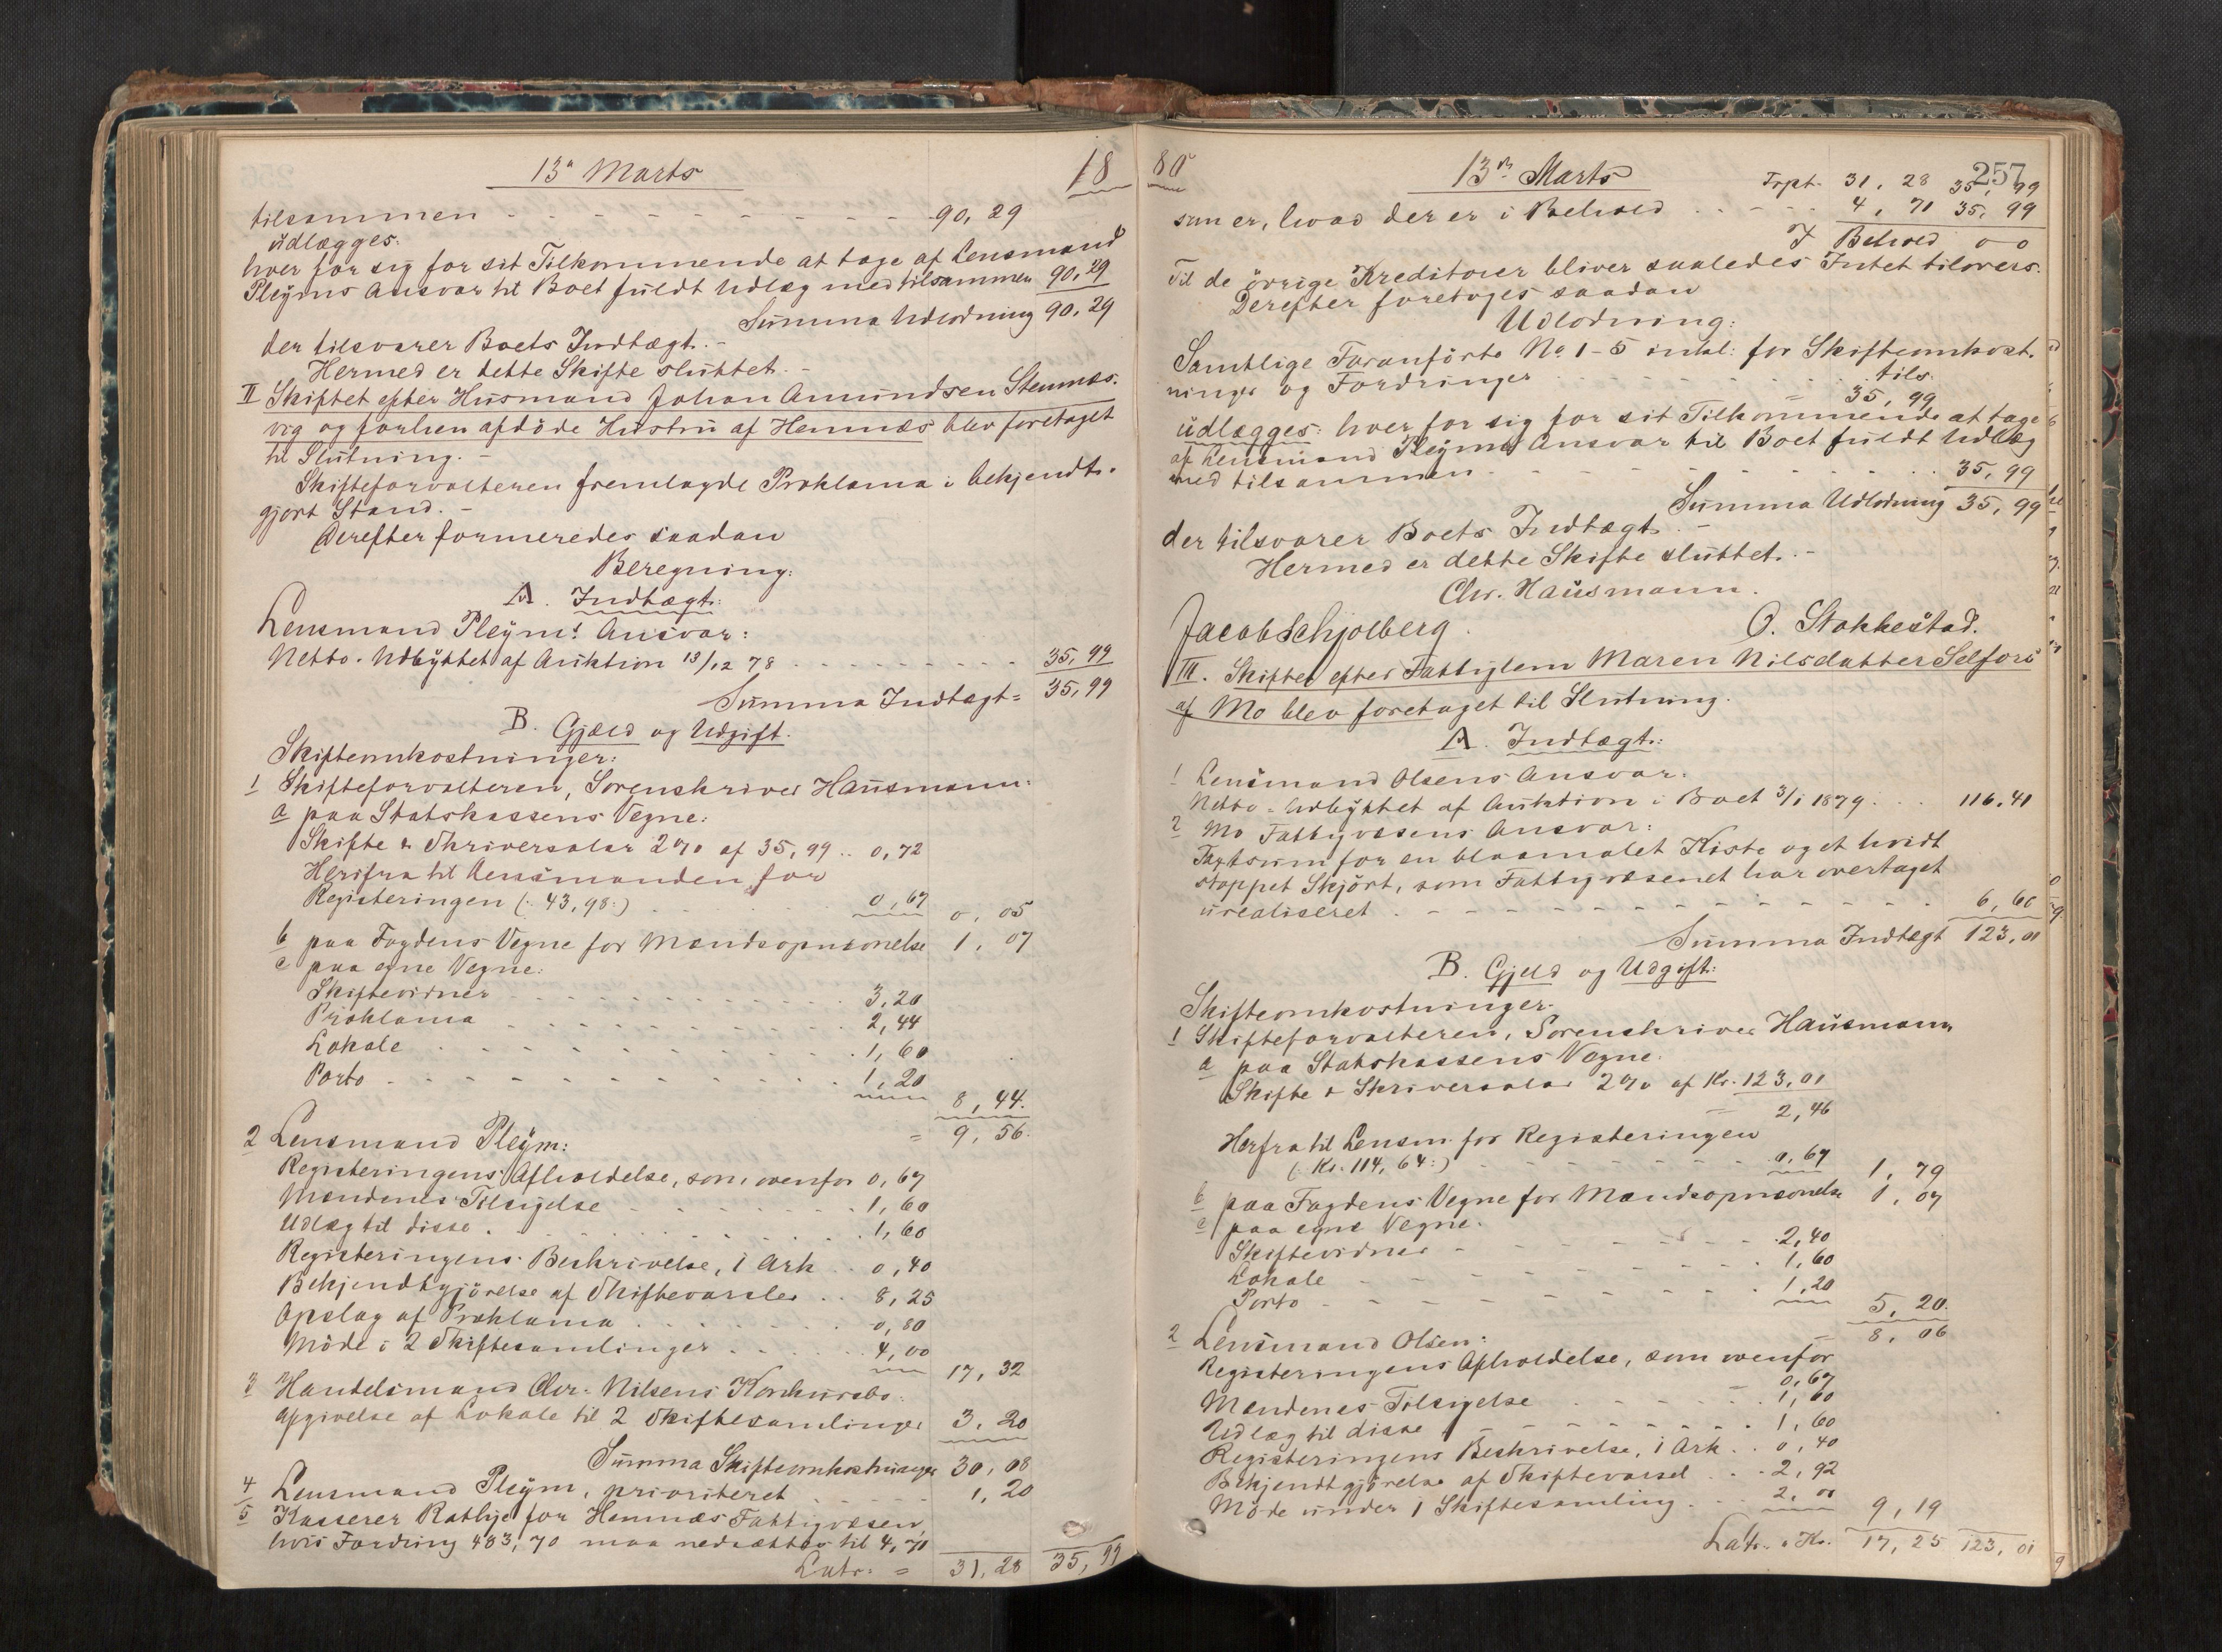 13de Marts 18
tilsammen - - - - - - - - - - 90, 29
udlægges:
hver for sig for sit Tilkommende at tage af Lensmand
Pleÿms Ansvar til Boet fuldt Udlæg med tilsammen 90,29
Summa Udlodning 90,29
der tilsvarer Boets Indtægt. -
Hermed er dette Skifte sluttet. -
II Skiftet efter Husmand Johan Amundsen Stennes-
vig og forhen afdöde Hustru af Hemnæs blev foretaget
til Slutning. -
Skifteforvalteren fremlagde Proklama i bekjendt-
gjort Stand. -
Derefter formeredes saadan
Beregning:
A. Indtægt:
Lensmand Pleÿms Ansvar:
Netto-Udbyttet af Auktion 13/12 78 - - - - - 35,99
Summa Indtægt = 35,99
B. Gjæld og Udgift.
Skifteomkostninger:
1 Skifteforvalteren, Sorenskriver Hausmann:
a paa Statskassens Vegne:
Skifte & Skriversalær 2 % af 35,99 .. 0,72
Herifra til Lensmanden for
Registeringen (: 43,98:) . . . 0,67 0,05
b paa Fogdens Vegne for Mandsopnævnelse 1,07
c paa egne Vegne:
Skiftevidner - - - - - 3,20
Proklama - - - - - 2,44
Lokale - - - - - 1,60
Porto - - - - - 1,20 8,44.
= 9,56.
2 Lensmand Pleÿm:
Registeringens Afholdelse, som ovenfor 0,67
Mændenes Tilsigelse - - - - 1,60
Udlæg til disse . . . . . 1,60
Registeringens Beskrivelse, 1 Ark . . 0,40
Bekjendtgjörelse af Skiftevarsler . . 8,25
Opslag af Proklama . . . . 0,80
Möde i 2 Skiftesamlinger . . . . 4,00 17,32
3 Handelsmand Chr. Nilsens Konkursbo:
Afgivelse af Lokale til 2 Skiftesamlinger 3,20
Summa Skifteomkostninger 30,08
4 Lensmand Pleÿm, prioriteret . . . . 1,20
5 Kasserer Rathje for Hemnæs Fattigvæsen,
hvis Fordring 483,70 maa nedsættes til 4,71
Latr: = 31,28 35,99
80 13de Marts 257
Trpt. 31,28 35,99
som er, hvad der er i Behold . . - - - 4,71 35,99
I Behold 0 0
Til de övrige Kreditorer bliver saaledes Intet tilovers.
Derefter foretoges saadan
Udlodning:
Samtlige Foranförte No 1-5 inkl: for Skifteomkost-
ninger og Fordringer . . . . . . . tils.
= 35,99
udlægges: hver for sig for sit Tilkommende at tage
af Lensmand Pleÿms Ansvar til Boet fuldt Udlæg
med tilsammen - - - - - - 35,99
Summa Udlodning 35,99
der tilsvarer Boets Indtægt. -
Hermed er dette Skifte sluttet. -
Chr. Hausmann.
Jacob Schjelberg. O. Stokkestad.
III. Skiftet efter Fattiglem Maren Nilsdatter Selfors
af Mo blev foretaget til Slutning.
A. Indtægt:
1 Lensmand Olsens Ansvar:
Netto-Udbyttet af Auktion i Boet 3/1 1879 . . . 116,41
2 Mo Fattigvæsens Ansvar:
Taxtsum for en blaamalet Kiste og et hvidt
stoppet Skjört, som Fattigvæsenet har overtaget
urealiseret . - - - - - - - - 6,60
Summa Indtægt 123,01
B. Gjæld og Udgift:
Skifteomkostninger.
1 Skifteforvalteren, Sorenskriver Hausmann
a paa Statskassens Vegne:
Skifte & Skriversalær 2 % af Kr. 123,01
= 2,46
Herfra til Lensm. for Registeringen
(: Kr. 114,64:) - - - - - 0,67 1,79
b paa Fogdens Vegne for Mandsopnævnelse 1,07
c paa egne Vegne.
Skiftevidner - - - - - 2,40
Lokale - - - - - 1,60
Porto - - - - - 1,20 5,20.
= 8,06
2 Lensmand Olsen:
Registeringens Afholdelse, som ovenfor
= 0,67
Mændenes Tilsigelse . . . . . 1,60
Udlæg til disse - - - - - 1,60
Registeringens Beskrivelse, 1 Ark . . 0,40
Bekjendtgjörelse af Skiftevarsel . . . 2,92
Möde under 1 Skiftesamling . . . 2,00 9,19
Latr. = Kr. 17,25 123,01